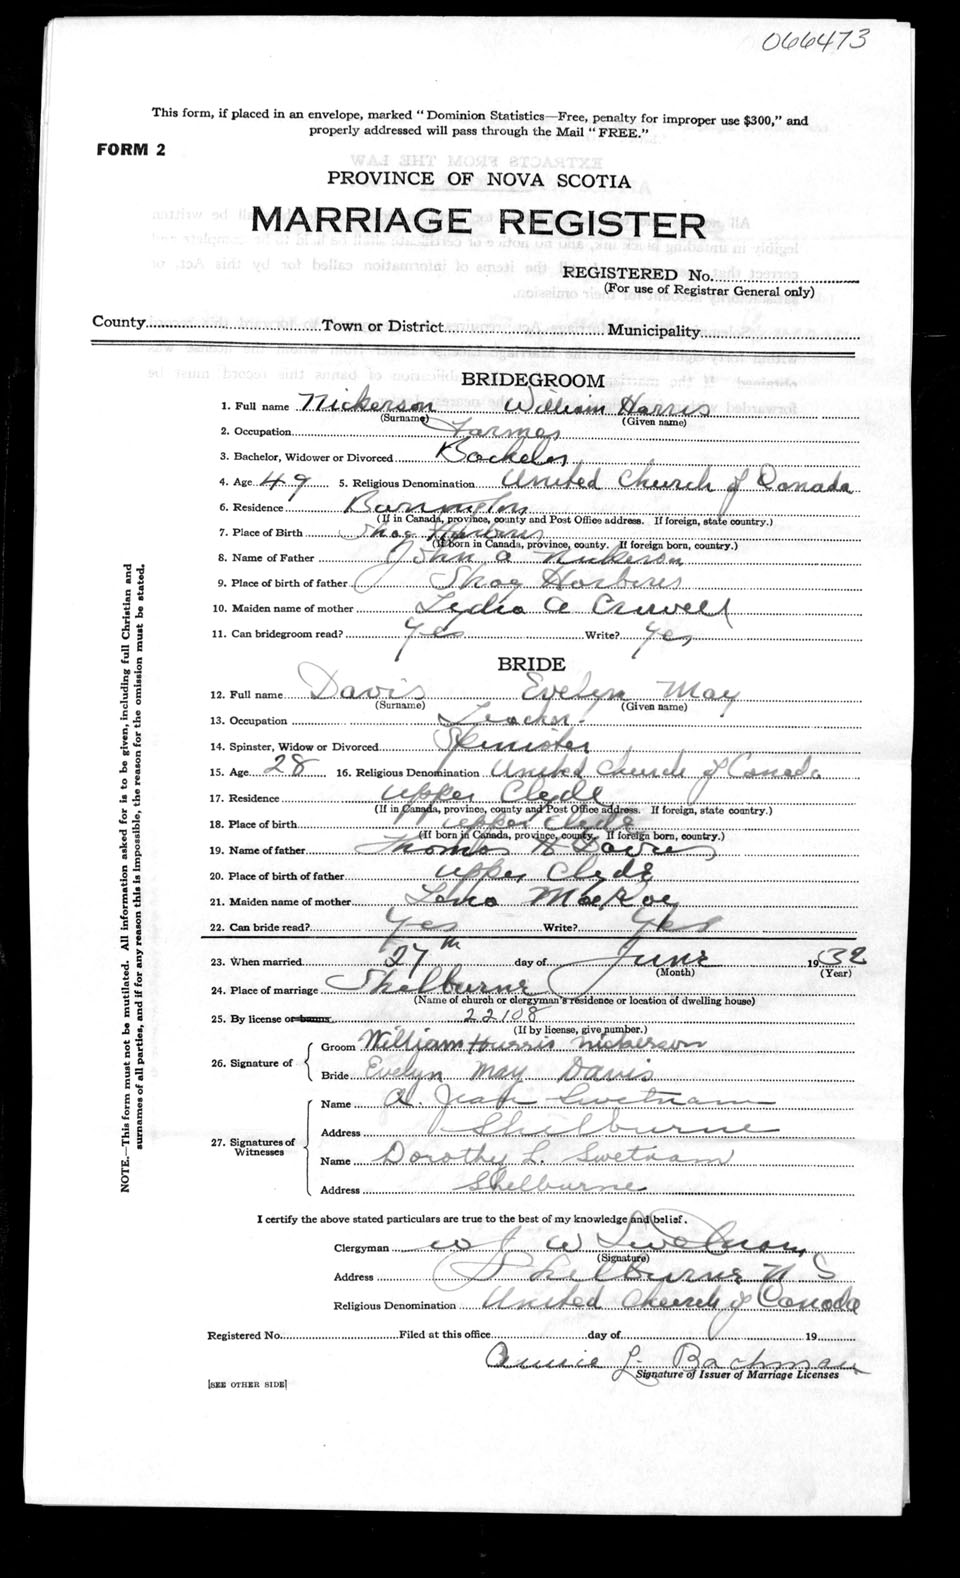 066473
This form, if placed in an envelope, marked "Dominion Statistics—Free, penalty for improper use $300," and
properly addressed will pass through the Mail "FREE."
FORM 2
PROVINCE OF NOVA SCOTIA
MARRIAGE REGISTER
REGISTERED No.
(For use of Registrar General only)
County Town or District Municipality
BRIDEGROOM
1. Full name Nickerson William Harris
(Surname) (Given name)
2. Occupation Farmer
3. Bachelor, Widower or Divorced Bachelor
4. Age 49 5. Religious Denomination United Church of Canada
6. Residence Barrington
(If in Canada, province, county and Post Office address. If foreign, state country.)
7. Place of Birth Shag Harbour
(If born in Canada, province, county. If foreign born, country.)
8. Name of Father John A Nickerson
9. Place of birth of father Shag Harbour
10. Maiden name of mother Lydia A Crowell
11. Can bridegroom read? Yes Write? Yes
BRIDE
12. Full name Davis Evelyn May
(Surname) (Given name)
13. Occupation Teacher
14. Spinster, Widow or Divorced Spinster
15. Age 28 16. Religious Denomination United Church of Canada
17. Residence Upper Clyde
(If in Canada, province, county and Post Office address. If foreign, state country.)
18. Place of birth Upper Clyde
(If born in Canada, province, county. If foreign born, country.)
19. Name of father Thomas Davis
20. Place of birth of father Upper Clyde
21. Maiden name of mother Lena MacKay
22. Can bride read? Yes Write? Yes
23. When married 27th day of June 1932
(Month) (Year)
24. Place of marriage Shelburne
(Name of church or clergyman's residence or location of dwelling house)
25. By license or banns 22108
(If by license, give number.)
26. Signature of Groom William Harris Nickerson
Bride Evelyn May Davis
27. Signatures of Witnesses
Name A. Jean Swetnam
Address Shelburne
Name Dorothy L. Swetnam
Address Shelburne
I certify the above stated particulars are true to the best of my knowledge and belief.
Clergyman W J W Swetnam
(Signature)
Address Shelburne N S
Religious Denomination United Church of Canada
Registered No. Filed at this office day of 19
Annie L. Bachman
Signature of Issuer of Marriage Licenses
[SEE OTHER SIDE]
NOTE.—This form must not be mutilated. All information asked for is to be given, including full Christian and
surnames of all parties, and if for any reason this is impossible, the reason for the omission must be stated.